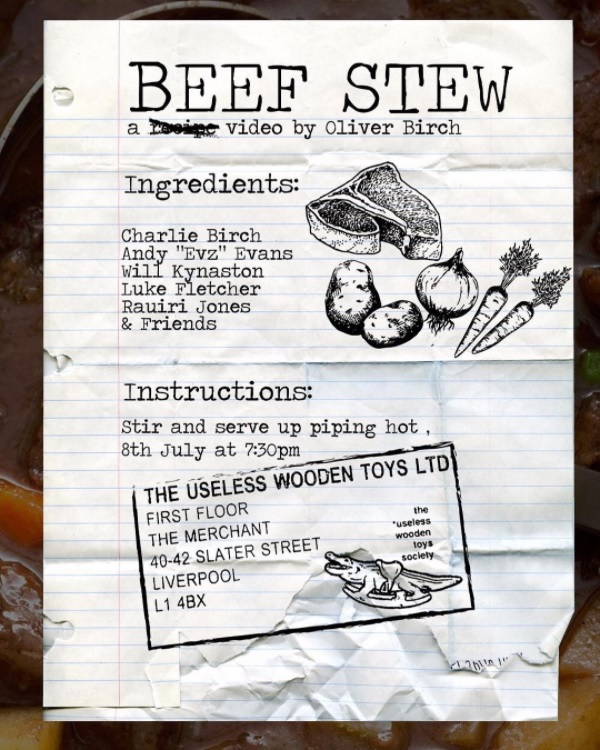 BEEF STEW
a recipe video by Oliver Birch
Ingredients:
Charlie Birch
Andy "Evz" Evans
Will Kynaston
Luke Fletcher
Rauiri Jones
& Friends
Instructions:
Stir and serve up piping hot ,
8th July at 7:30pm
THE USELESS WOODEN TOYS LTD
FIRST FLOOR
THE MERCHANT
40-42 SLATER STREET
LIVERPOOL
L1 4BX
the
*useless
wooden
toys
society